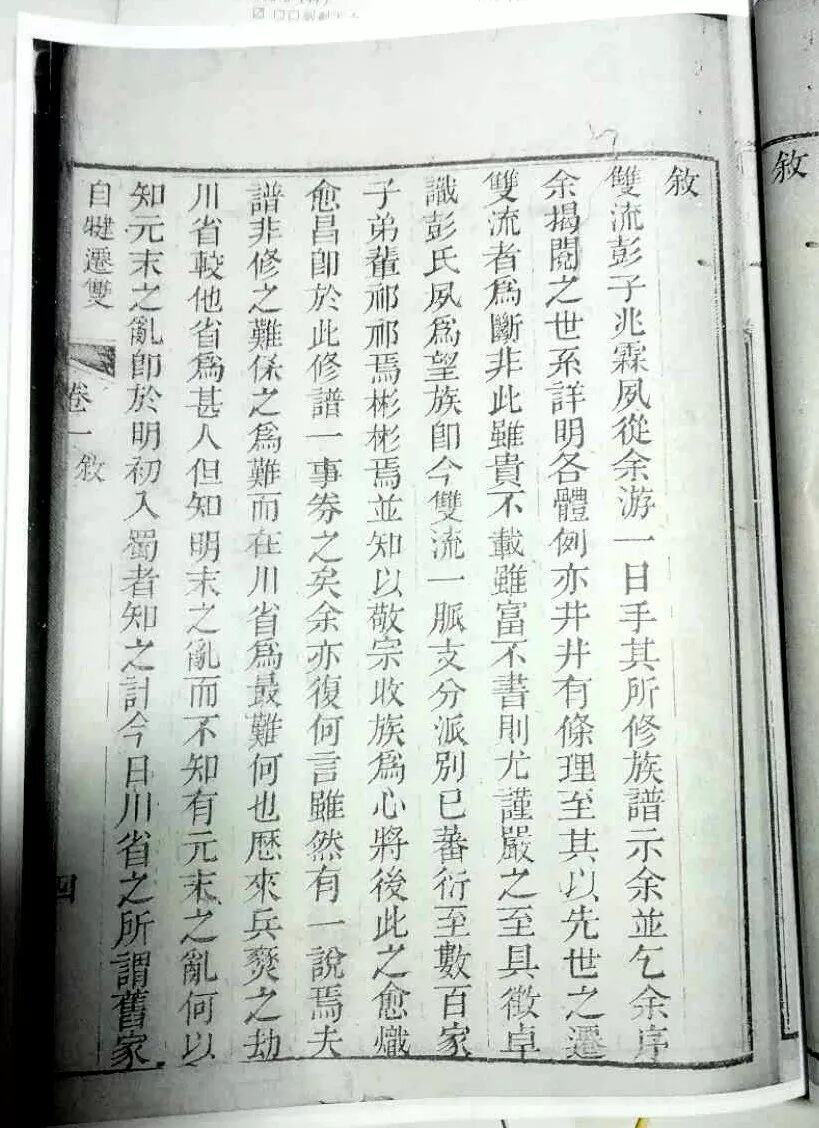 敘
雙流彭子兆霖夙從余游一日手其所修族譜示余並乞余序
余揭閱之世系詳明各體例亦井井有條理至其以先世之遷
雙流者爲斷非此雖貴不載雖富不書則尤謹嚴之至具徵卓
識彭氏夙爲望族卽今雙流一脈支分派別已蕃衍至數百家
子弟輩祁祁焉彬彬焉並知以敬宗收族爲心將後此之愈熾
愈昌卽於此修譜一事券之矣余亦復何言雖然有一說焉夫
譜非修之難係之爲難而在川省爲最難何也歷來兵燹之劫
川省較他省爲甚人但知明末之亂而不知有元末之亂何以
知元末之亂卽於明初入蜀者知之計今日川省之所謂舊家
自犍遷雙
卷一 敘
四
敘